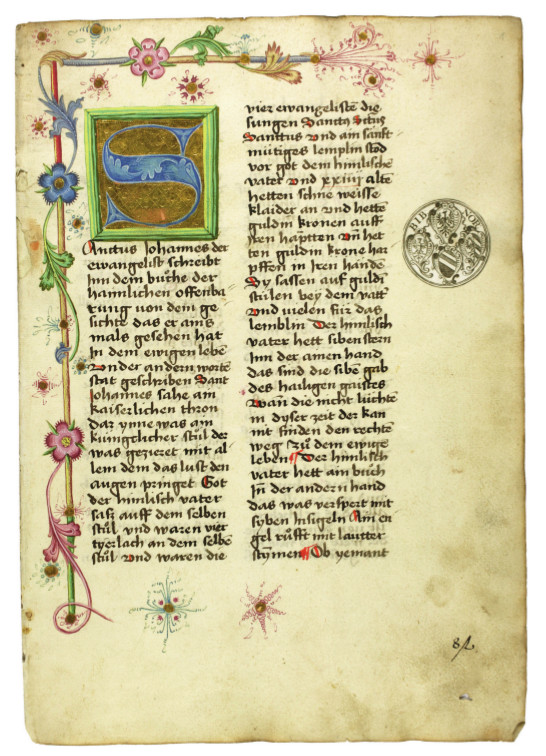 S
Anctus Johannes der
ewangelist schreibt
Inn dem buche der
haimlichen offenba
rung von dem ge
sichte das er ains
mals gesehen hat
In dem ewigen leben
Vnder andern worten
stat geschriben Sant
Johannes sahe am
kaiserlichen thron
dar ynne was ain
kunigtlicher stůl der
was gezieret mit al
lem dem das lust den
augen pringet Got
der himlisch vater
sasz auff dem selben
stůl vnd waren vier
tyerlach an dem selbē
stůl vnd waren die
vier ewangelistē die
sungen Sanctus Sctus
Sanctus vnd ain sanft
mütiges lemplin stŏd
vor got dem himlischē
vater vnd xxiiii altē
hetten schne weisse
klaider an vnd hettē
guldin kronen auff
iren hāptten vn̄ het
ten guldin krone har
pffen in Iren hānde
Dy sassen auf guldī
stůlen bey dem vatt
vnd vielen für das
lemblin Der himlisch
vater hett siben stern
Inn der ainen hand
das sind die sibē gab
des hailigen gaistes
wān die nicht lüchtē
in dyser zeit der kan
nit finden den rechtē
weg zů dem ewigē
leben Der himlisch
vater hett ain bůch
Jn der andern hand
das was verspert mit
syben Insigeln Ain en
gel růfft mit lautter
stȳmen Ob yemant
BIB NOR
82